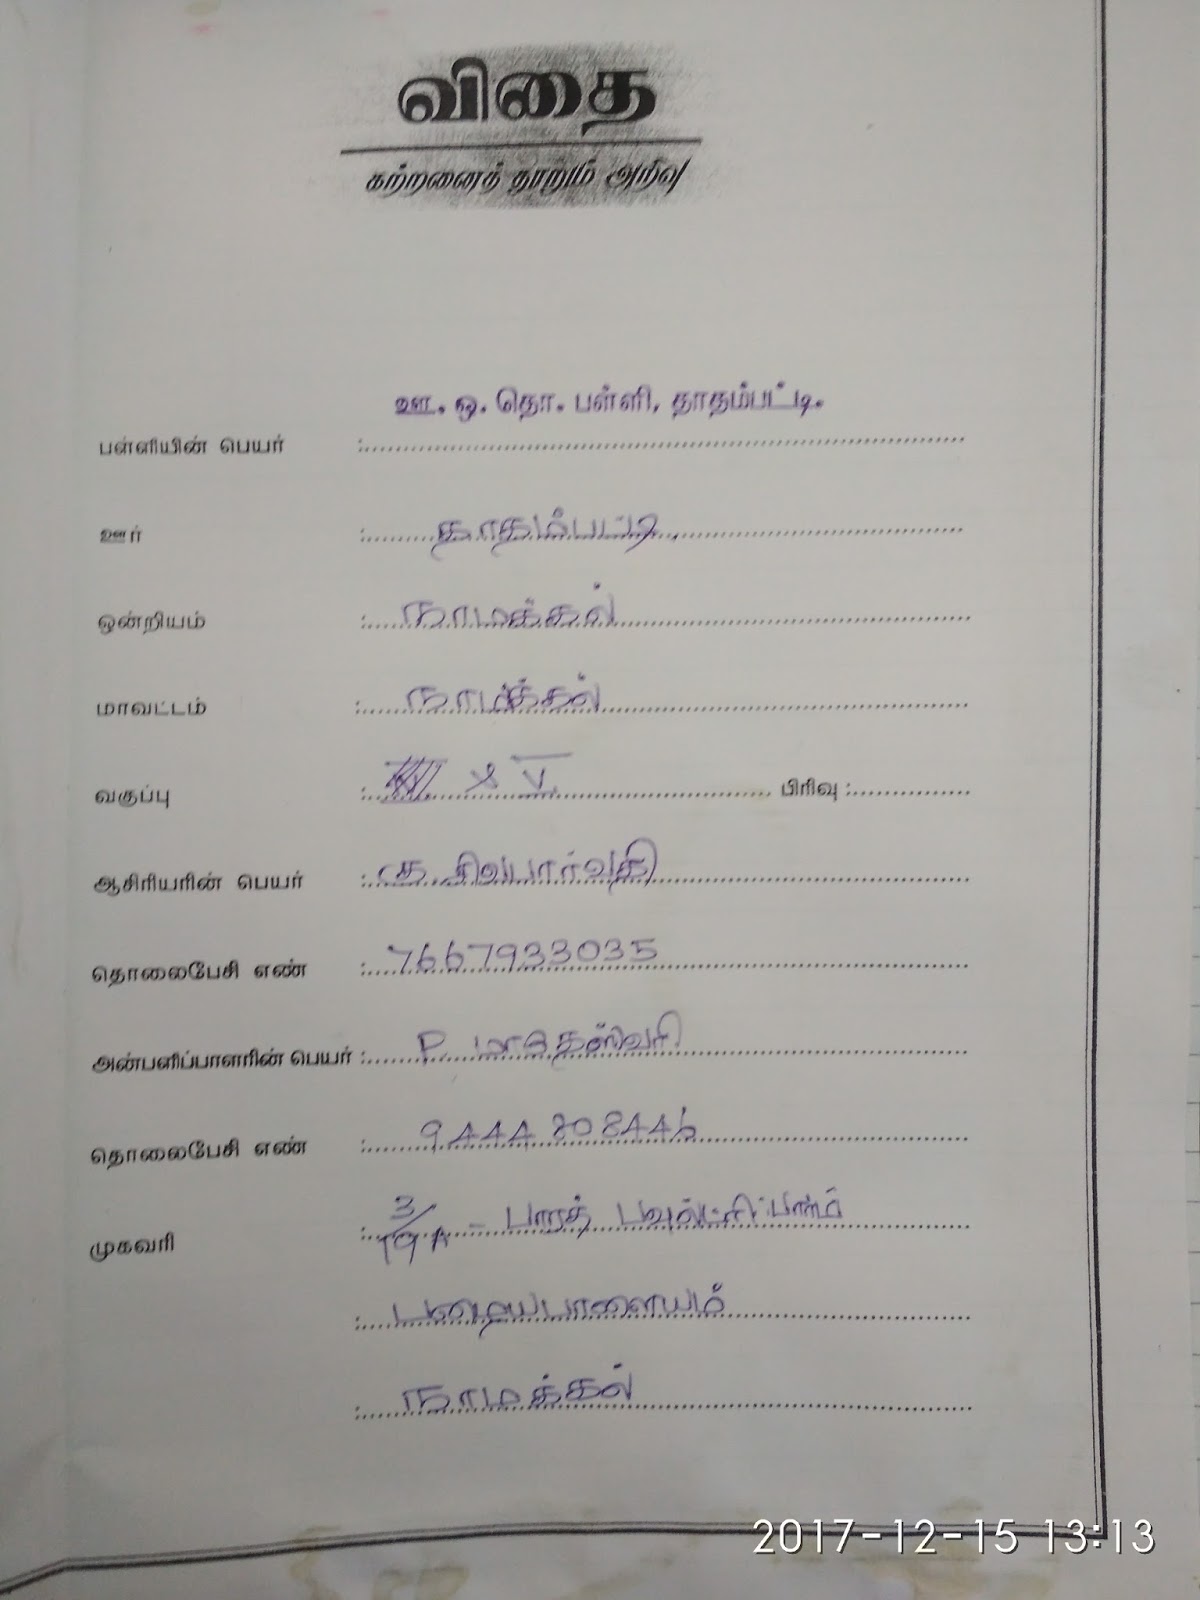 விதை
கற்றனைத் தூறும் அறிவு
ஊ. ஒ. தொ. பள்ளி, தாதம்பட்டி.
பள்ளியின் பெயர் :
ஊர் : தாதம்பட்டி.
ஒன்றியம் : நாமக்கல்
மாவட்டம் : நாமக்கல்
வகுப்பு : & V பிரிவு :
ஆசிரியரின் பெயர் : த. சிவபார்வதி
தொலைபேசி எண் : 7667933035
அன்பளிப்பாளரின் பெயர் : P. மாகேஸ்வரி
தொலைபேசி எண் : 9444808446
முகவரி : 3/19A - பாரத்
: பழையபாளையம்
: நாமக்கல்
2017-12-15 13:13